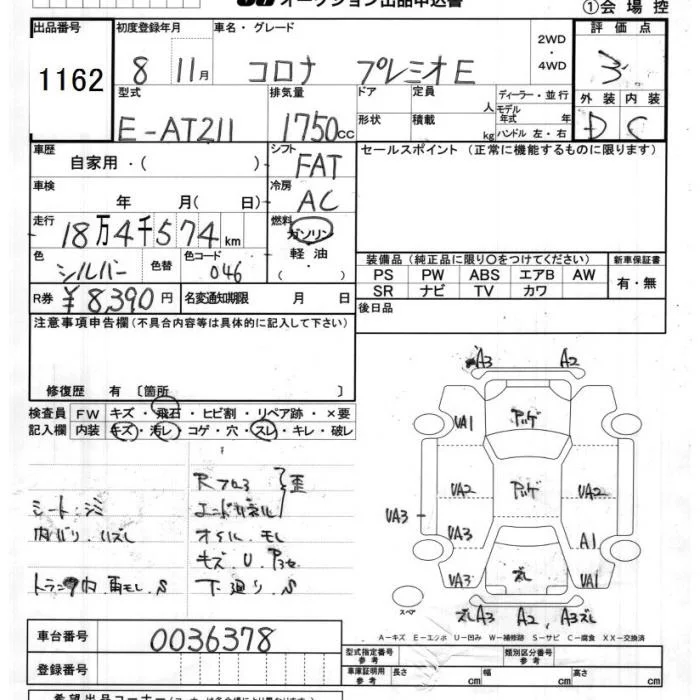 オークション出品申込書 ①会場控
出品番号 初度登録年月 車名・グレード 2WD・4WD 評価点
1162 8 11月 コロナ プレミオE 3
型式 排気量 ドア 定員 人 ディーラー・並行 外装 内装
E-AT211 1750cc 形状 積載 kg モデル年式 年 ハンドル 左・右 D C
車歴 自家用・( ) シフト FAT セールスポイント (正常に機能するものに限ります)
車検 年 月( 日) 冷房 AC
走行 18万4千574km 燃料 ガソリン
色 シルバー 色替 色コード 046 軽油・( )
装備品 (純正品に限り○をつけてください) 新車保証書
PS PW ABS エアB AW 有・無
SR ナビ TV カワ
R券 ¥8,390円 名変通知期限 月 日 後日品
注意事項申告欄(不具合内容等は具体的に記入して下さい)
修復歴 有 〔箇所 〕
検査員 FW キズ・飛石・ヒビ割・リペア跡・×要
記入欄 内装 キズ・汚レ・コゲ・穴・スレ・キレ・破レ
A3 A2
UA1 アッゲ
UA2 アッゲ UA2
UA3 UA3 A1
UA3 ズレ UA1
スペア ズレA3 A2 A3ズレ
Rフロ 歪
シート・シミ エンドパネル
内バリ ハズレ オイル モレ
キズ U
トランク内 雨モレ S 下廻り S
A－キズ E－エクボ U－凹み W－補修跡 S－サビ C－腐食 XX－交換済
車台番号 0036378
登録番号
型式指定番号 参考 類別区分番号 参考
車庫証明用 参考 長さ cm 幅 cm 高さ cm
希望出品コーナー